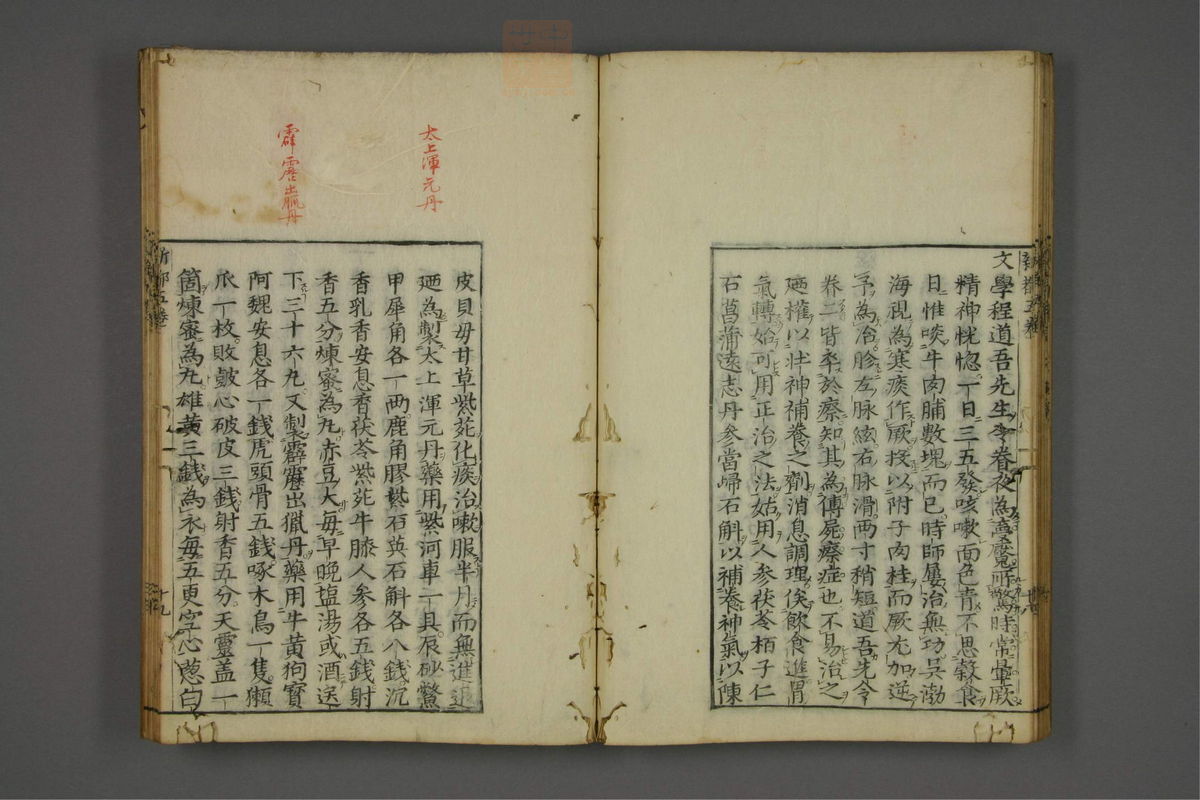 文學程道吾先生令眷夜為夢魘所驚時常暈厥
精神恍惚一日三五發咳嗽面色青不思穀食
日惟啖牛肉脯數塊而已時師屢治無功吳渤
海視為寒痰作厥投以附子肉桂而厥尤加逆
予為治胗左脉絃右脉滑两寸稍短道吾先令
眷二皆卒於瘵知其為傳屍瘵症也不易治之
廼權以壮神補養之劑消息調理俟飲食進胃
氣轉始可用正治之法姑用人参茯苓栢子仁
石菖蒲遠志丹参當歸石斛以補養神氣以陳
太上渾元丹
霹靂出獵丹
皮貝母甘草紫菀化痰治嗽服半月而無進退
廼為製太上渾元丹藥用紫河車一具辰砂鱉
甲犀角各一两鹿角膠紫石英石斛各八錢沉
香乳香安息香茯苓紫菀牛膝人参各五錢射
香五分煉蜜為丸赤豆大每早晚塩湯或酒送
下三十六丸又製霹靂出獵丹藥用牛黄狗寳
阿魏安息各一錢虎頭骨五錢啄木鳥一隻獺
爪一枚敗皷心破皮三錢射香五分天靈盖一
箇煉蜜為丸雄黄三錢為衣每五更空心蔥白